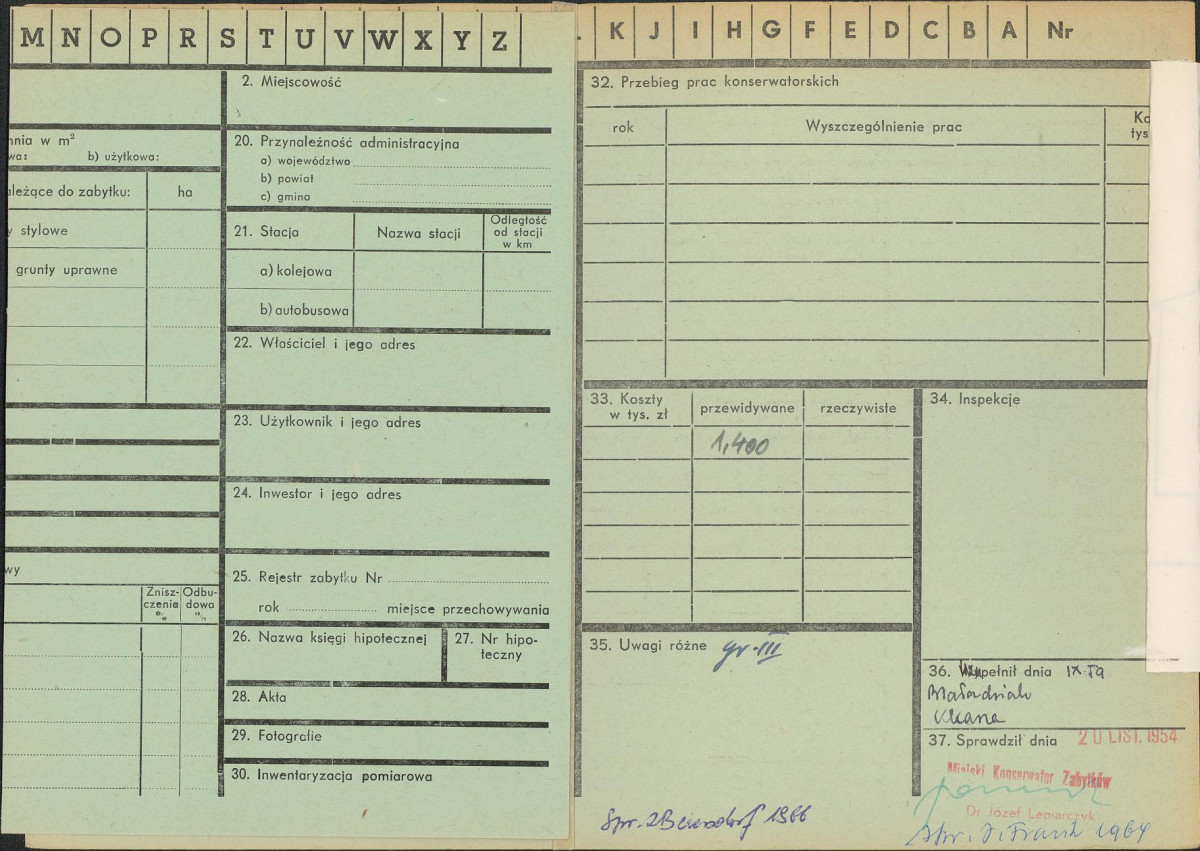 M N O P R S T U V W X Y Z
2. Miejscowość
nia w m²
wa: b) użytkowa:
20. Przynależność administracyjna
a) województwo
b) powiat
c) gmina
ależące do zabytku: ha
y stylowe
grunty uprawne
21. Stacja Nazwa stacji Odległość od stacji w km
a) kolejowa
b) autobusowa
22. Właściciel i jego adres
23. Użytkownik i jego adres
24. Inwestor i jego adres
25. Rejestr zabytku Nr
rok miejsce przechowywania
wy
Znisz-
czenia
%
Odbu-
dowa
%
26. Nazwa księgi hipotecznej
27. Nr hipo-
teczny
28. Akta
29. Fotografie
30. Inwentaryzacja pomiarowa
K J I H G F E D C B A Nr
32. Przebieg prac konserwatorskich
rok Wyszczególnienie prac Ko
tys
33. Koszty
w tys. zł
przewidywane rzeczywiste
1,400
34. Inspekcje
35. Uwagi różne gr. III
36. Wypełnił dnia IX.59
37. Sprawdził dnia 20 LIST. 1954
Miejski Konserwator Zabytków
Dr Józef Lepiarczyk
Spr. J Beiersdorf 1966
Spr. J. Frazik 1964